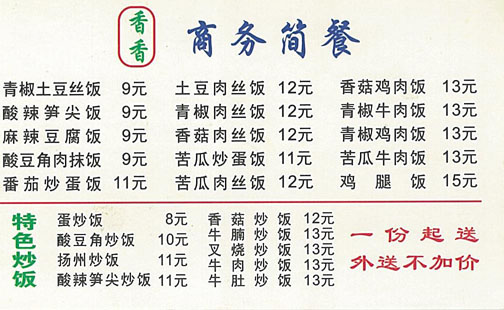 香香
商务简餐
青椒土豆丝饭 9元 土豆肉丝饭 12元 香菇鸡肉饭 13元
酸辣笋尖饭 9元 青椒肉丝饭 12元 青椒牛肉饭 13元
麻辣豆腐饭 9元 香菇肉丝饭 12元 青椒鸡肉饭 13元
酸豆角肉抹饭 9元 苦瓜炒蛋饭 11元 苦瓜牛肉饭 13元
番茄炒蛋饭 11元 苦瓜肉丝饭 12元 鸡腿饭 15元
特色炒饭
蛋炒饭 8元 香菇炒饭 12元
酸豆角炒饭 10元 牛腩炒饭 13元
叉烧炒饭 13元
扬州炒饭 11元 牛肉炒饭 13元
酸辣笋尖炒饭 11元 牛肚炒饭 13元
一份起送
外送不加价